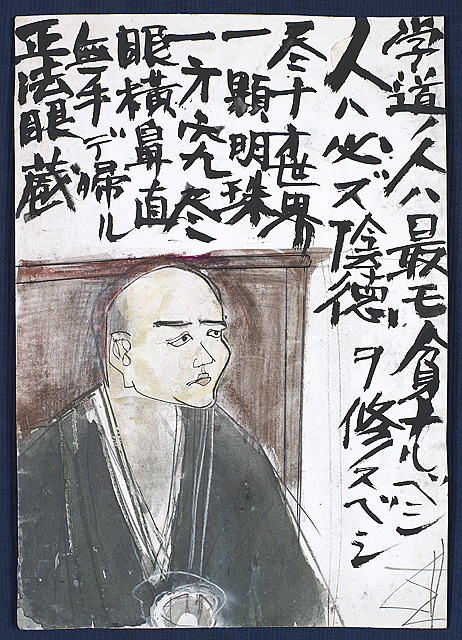 学道ノ人ハ最モ貧ナルベシ
人ハ必ズ陰徳ヲ修スベシ
尽十方世界
一顆明珠
一方究尽
眼横鼻直
空手デ帰ル
正法眼蔵